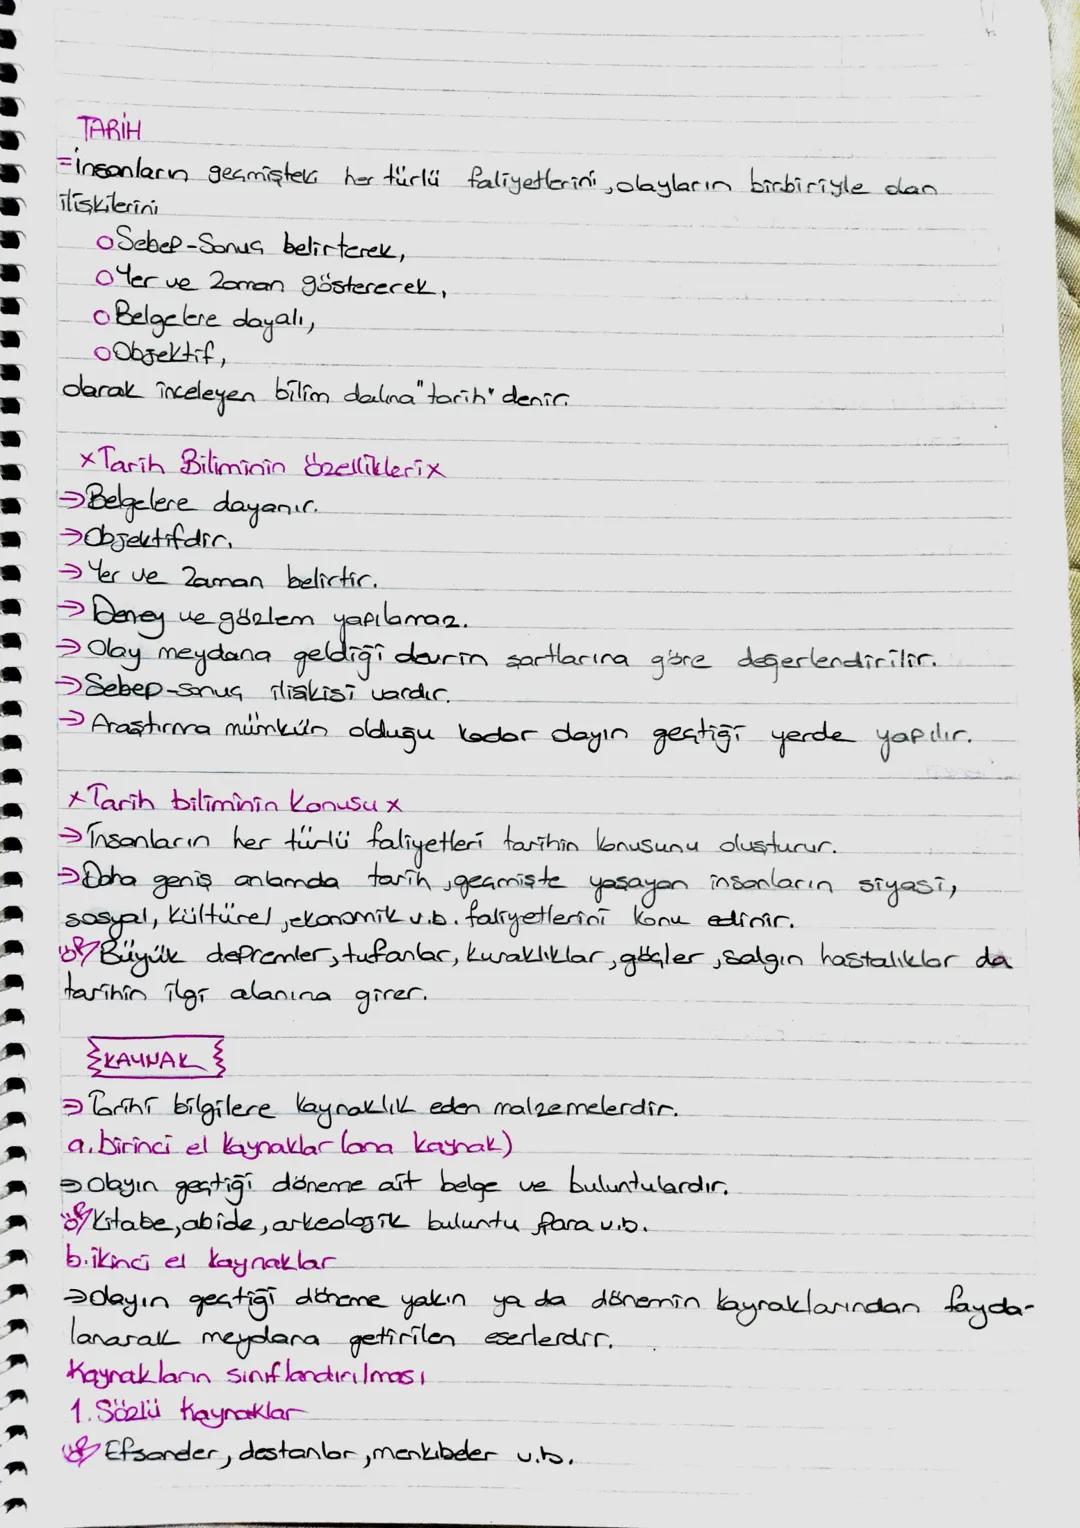 TARİH
=İnsanların geçmişteki her türlü faliyetlerini, olayların birbiriyle olan
ilişkilerini
○ Sebep-Sonuç belirterek,
○ Yer ve Zaman göstererek,
○ Belgelere dayalı,
○ Objektif,
olarak inceleyen bilim dalına "tarih" denir.
x Tarih Biliminin özellikleri x
→ Belgelere dayanır.
→ Objektifdir.
→ Yer ve Zaman belirtir.
→ Deney ve gözlem yapılamaz.
→ Olay meydana geldiği devrin şartlarına göre değerlendirilir.
→ Sebep-sonuç ilişkisi vardır.
→ Araştırma mümkün olduğu kadar olayın geçtiği yerde yapılır.
x Tarih biliminin konusu x
→ İnsanların her türlü faliyetleri tarihin konusunu oluşturur.
→ Daha geniş anlamda tarih, geçmişte yaşayan insanların siyasi,
sosyal, kültürel, ekonomik v.b. faliyetlerini konu edinir.
ör/ Büyük depremler, tufanlar, kuraklıklar, göçler, salgın hastalıklar da
tarihin ilgi alanına girer.
KAYNAK
→ Tarihi bilgilere kaynaklık eden malzemelerdir.
a. birinci el kaynaklar (ana kaynak)
→ Olayın geçtiği döneme ait belge ve buluntulardır.
ör/ Kitabe, abide, arkeolojik buluntu, para v.b.
b. ikinci el kaynaklar
→ Olayın geçtiği döneme yakın ya da dönemin kaynaklarından fayda-
lanarak meydana getirilen eserlerdir.
Kaynakların sınıflandırılması
1. Sözlü Kaynaklar
ör/ Efsaneler, destanlar, menkıbeler v.b.